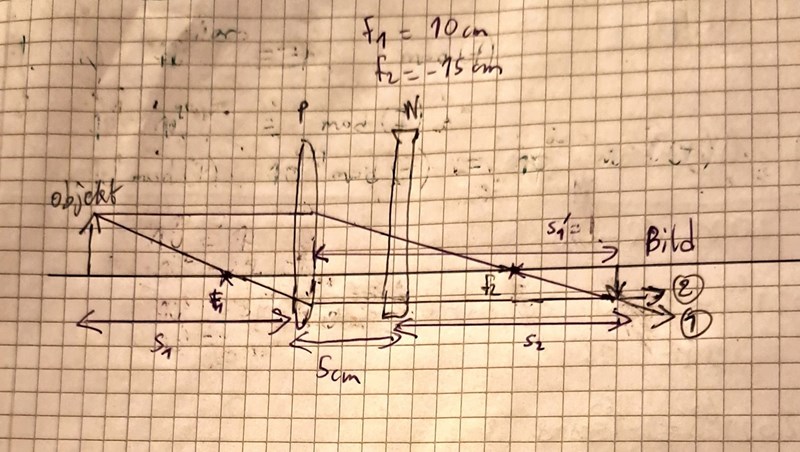 f₁ = 10 cm
f₂ = -15 cm
P N
Objekt
s₁' =
Bild
f₁
f₂
②
①
s₁
s₂
5cm